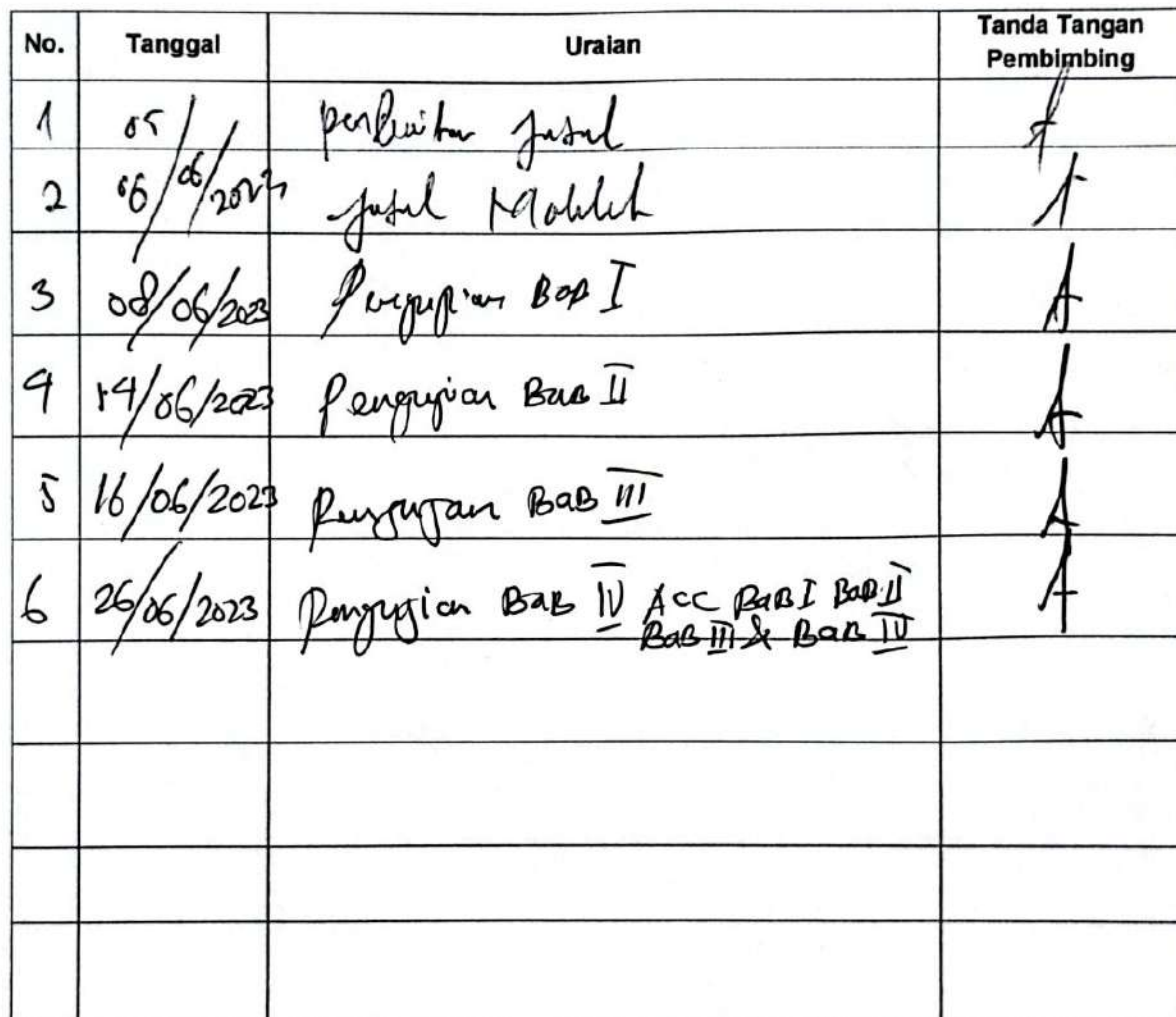 No. Tanggal Uraian Tanda Tangan Pembimbing
1 05 Judul
2 06/06/2023 Judul
3 08/06/2023 BAB I
4 14/06/2023 Pengujian BAB II
5 16/06/2023 BAB III
6 26/06/2023 Pengujian BAB IV ACC BAB I BAB II
BAB III & BAB IV